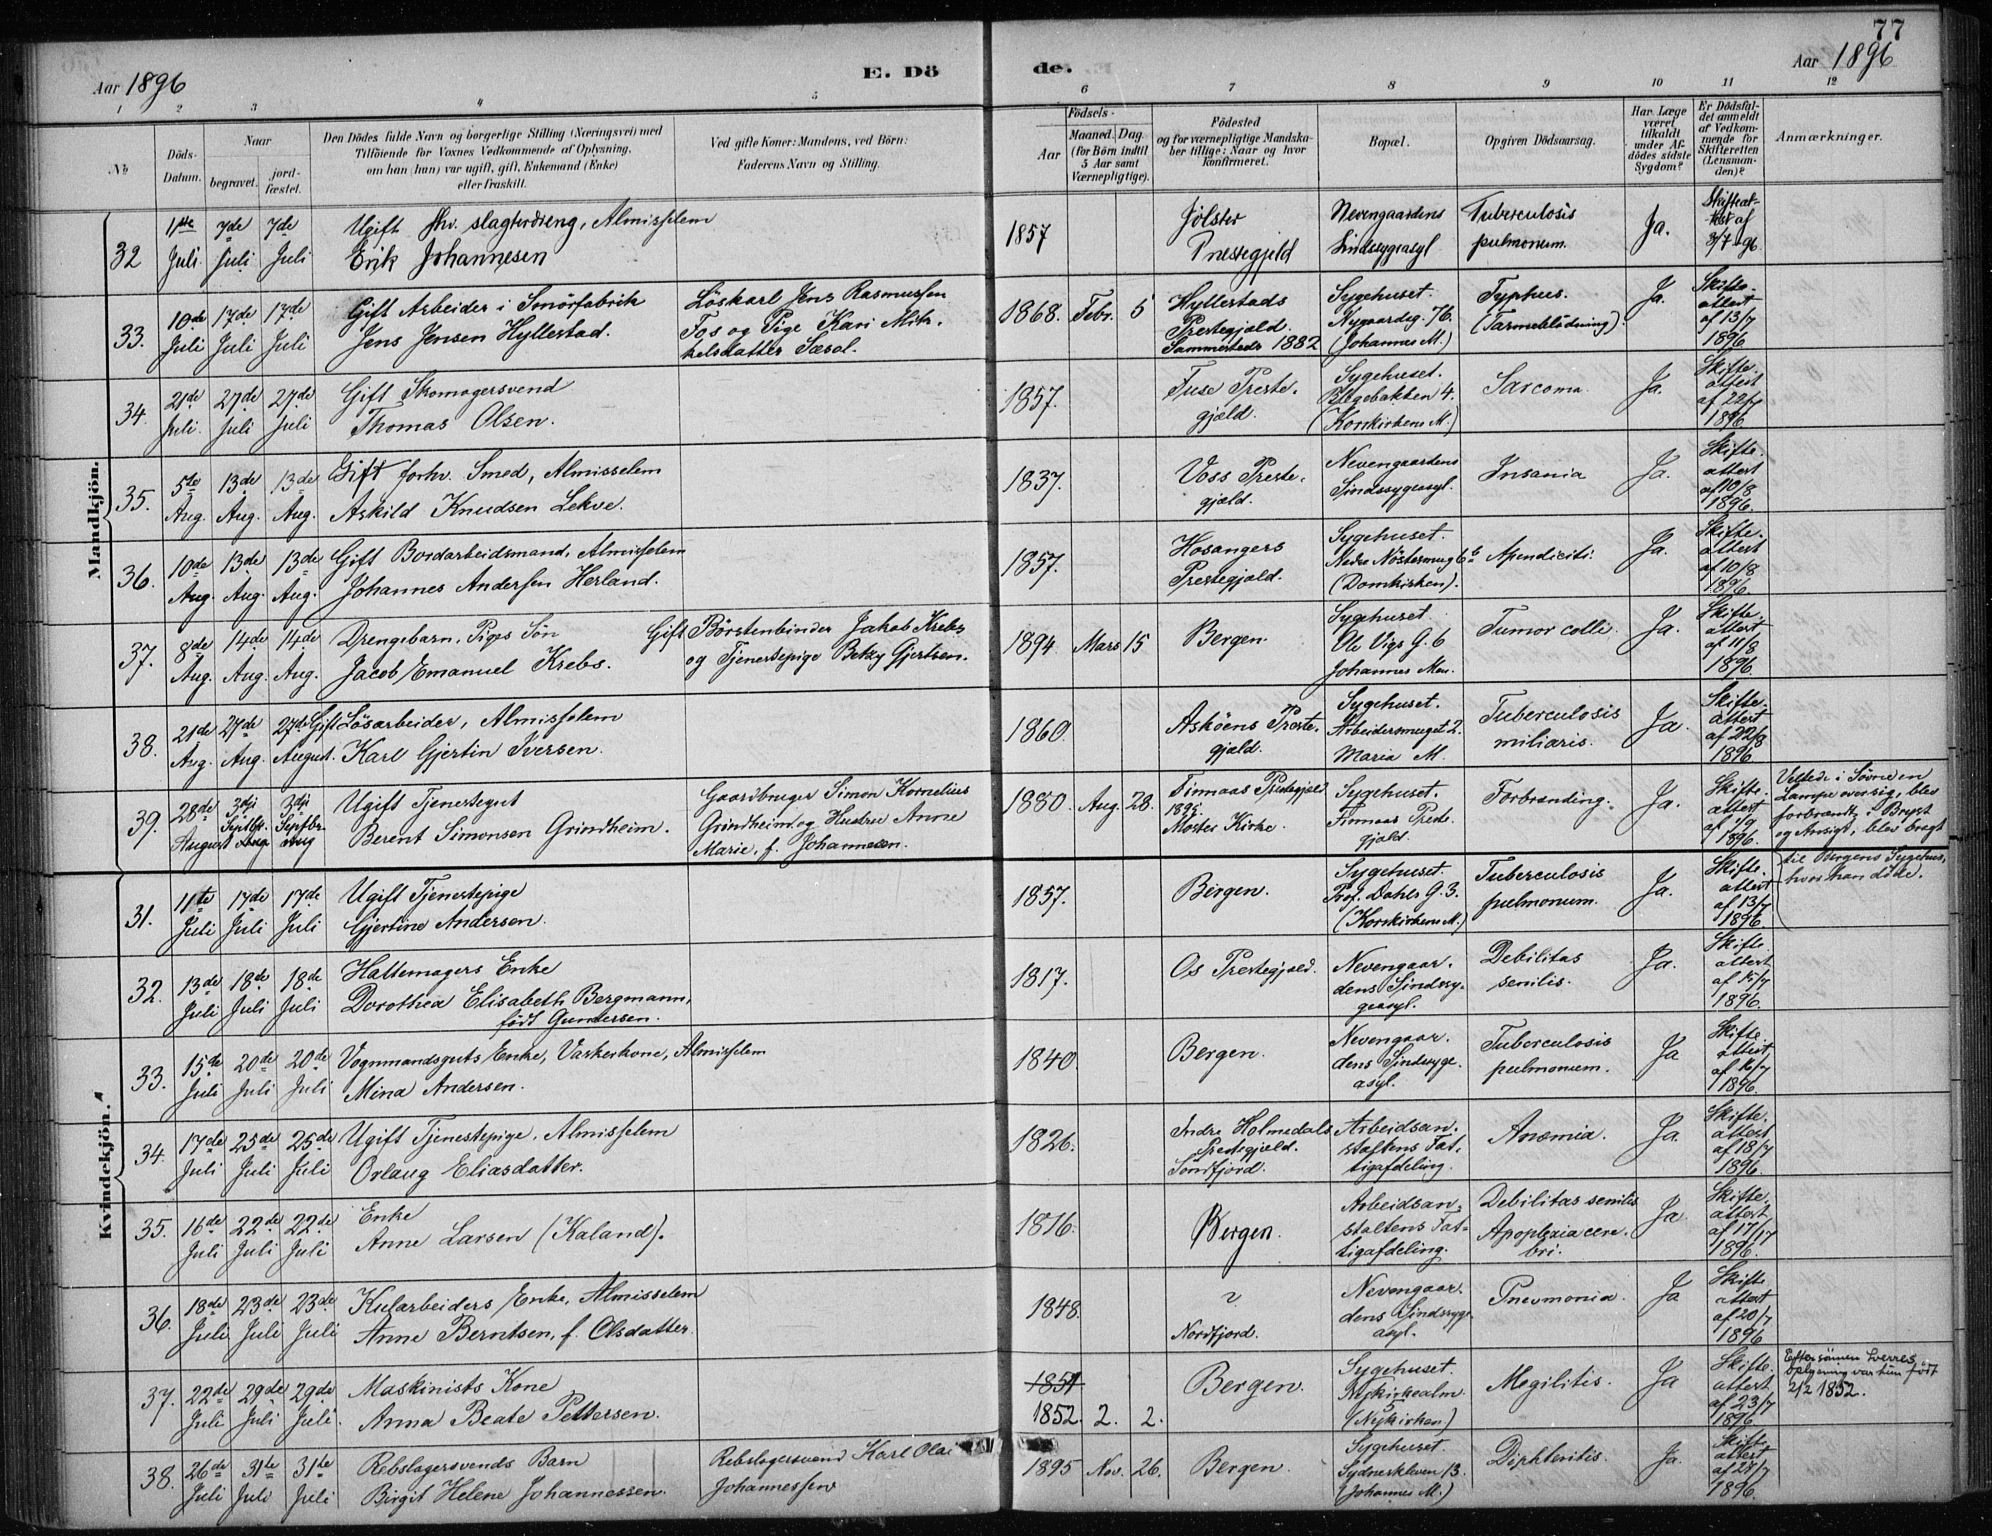 77
Aar 1896
E. Dö
de.
Aar 1896
1 2 3 4 5 6 7 8 9 10 11 12
No
Döds-
Datum.
Naar
begravet.
jord-
fæstet.
Den Dödes fulde Navn og borgerlige Stilling (Næringsvei) med
Tilföiende for Voxnes Vedkommende af Oplysning,
om han (hun) var ugift, gift, Enkemand (Enke)
eller fraskilt.
Ved gifte Koner: Mandens, ved Börn:
Faderens Navn og Stilling.
Födsels-
Aar
Maaned. Dag.
(for Börn indtil
5 Aar samt
Værnepligtige).
Födested
og for værnepligtige Mandska-
ber tillige: Naar og hvor
konfirmeret.
Bopæl.
Opgiven Dödsaarsag.
Har Læge
været
tilkaldt
under Af-
dödes sidste
Sygdom?
Er Dödsfal-
det anmeldt
af Vedkom-
mende for
Skifteretten
(Lensman-
den)?
Anmærkninger.
Mandkjön.
32
1ste Juli
7de Juli
7de Juli
Ugift fhv. slagterdreng, Almisselem
Erik Johannesen
1857
Jölster
Prestegjeld
Nevengaardens
Sindssygeasyl
Tuberculosis
pulmonum.
Ja.
Skifteat-
test af
3/7 96
33.
10de Juli
17de Juli
17de Juli
Gift Arbeider i Smörfabrik
Jens Jensen Hyllestad.
Löskarl Jens Rasmussen
Fos og Pige Kari Mik-
kelsdatter Sæsol.
1868. Febr. 5
Hyllestads
Prestegjæld.
Sammesteds 1882
Sygehuset.
Nygaardsg. 76.
(Johannes M.)
Typhus.
(Tarmeblödning).
Ja.
Skifte-
attest
af 13/7
1896
34.
21de Juli.
27de Juli
27de Juli
Gift Skomagersvend
Thomas Olsen.
1857.
Fuse Preste-
gjæld.
Sygehuset.
Blegebakken 4.
(Korskirkens M.)
Sarcoma.
Ja.
Skifte-
attest
af 22/7
1896
35.
5te Aug.
13de Aug.
13de Aug.
Gift forhv. Smed, Almisselem
Askild Knudsen Lekve.
1837.
Voss Preste-
gjæld.
Nevengaardens
Sindssygeasyl.
Insania
Ja.
Skifte-
attest
af 10/8
1896.
36.
10de Aug.
13de Aug.
13de Aug.
Gift Bordarbeidsmand, Almisselem
Johannes Andersen Herland.
1857.
Hosangers
Prestegjæld.
Sygehuset.
Nedre Nöstersmug 6b
(Domkirken).
Apendiciti:
Ja.
Skifte-
attest
af 10/8
1896.
37.
8de Aug.
14de Aug.
14de Aug.
Drengebarn, Piges Sön
Jacob Emanuel Krebs.
Gift Börstenbinder Jakob Krebs
og Tjenestepige Betzy Gjertsen.
1894. Mars 15
Bergen.
Sygehuset.
Ole Vigs G. 6
Johannes Men.
Tumor colli.
Ja.
Skifte-
attest
af 11/8
1896.
38.
21de Aug.
27de Aug.
27de August.
Gift Lösarbeider, Almisselem
Karl Gjertin Iversen.
1860.
Asköens Preste-
gjæld.
Sygehuset.
Arbeidersmuget 2.
Maria M.
Tuberculosis
miliaris.
Ja.
Skifte-
attest
af 22/8
1896
39.
28de August
3dje Septbr.
3dje Septbr.
Ugift Tjenestegut
Berent Simonsen Grindheim.
Gaardbruger Simon Kornelius
Grindheim og Hustru Anne
Marie, f. Johannesen.
1880. Aug. 28.
Finnaas Prestegjæld
1895.
Moster Kirke.
Sygehuset.
Finnaas Preste-
gjæld.
Forbrænding.
Ja.
Skifte-
attest
af 1/9
1896.
Veltede i Søvne en
Lampe over sig, blev
forbrændt i Bryst
og Ansigt, blev bragt
til Bergens Sygehus,
hvor han døde.
Kvindekjön.
31.
11te Juli
17de Juli
17de Juli
Ugift Tjenestepige
Gjertine Andersen.
1857.
Bergen.
Sygehuset.
Prof. Dahls G. 3.
(Korskirkens M.)
Tuberculosis
pulmonum.
Ja.
Skifte-
attest
af 13/7
1896.
32.
13de Juli
18de Juli
18de Juli
Hattemagers Enke
Dorothea Elisabeth Bergmann,
født Gundersen.
1817.
Os Prestegjæld.
Nevengaar-
dens Sindssy-
geasyl.
Debilitas
senilis.
Ja.
Skifte-
attest
af 15/7
1896.
33.
15de Juli
20de Juli
20de Juli
Vognmandsguts Enke, Vaskerkone, Almisselem
Mina Andersen.
1840.
Bergen.
Nevengaar-
dens Sindssyge-
asyl.
Tuberculosis
pulmonum.
Ja
Skifte-
attest
af 16/7
1896.
34.
17de Juli
25de Juli
25de Juli
Ugift Tjenestepige, Almisselem
Orlaug Eliasdatter.
1826.
Indre Holmedals
Prestegjæld.
Söndfjord.
Arbeidsan-
staltens Fat-
tigafdeling.
Anæmia.
Ja.
Skifte-
attest
af 18/7
1896.
35.
16de Juli
22de Juli
22de Juli
Enke
Anne Larsen (Kaland).
1816.
Bergen.
Arbeidsan-
staltens Fat-
tigafdeling.
Debilitas senilis
Apoplexia cere-
bri.
Ja.
Skifte-
attest
af 17/7
1896.
36.
18de Juli
23de Juli
23de Juli
Kularbeiders Enke, Almisselem
Anne Berntsen, f. Olsdatter.
1848.
?
Nordfjord.
Nevengaar-
dens Sindssyge-
asyl.
Pneumonia.
Ja
Skifte-
attest
af 20/7
1896
37.
22de Juli
29de Juli
29de Juli.
Maskinists Kone
Anna Beate Pettersen.
1851
1852. 2. 2.
Bergen.
Sygehuset.
Nykirkealm.
5
(Nykirken)
Megilitis.
Ja
Skifte-
attest
af 23/7
1896
Efter sönnen Sverres
oplysning var hun född
2/2 1852.
38.
26de Juli
31te Juli
31te Juli
Rebslagersvends Barn
Birgit Helene Johannessen.
Rebslagersvend Karl Olai
Johannessen
1895 Nov. 26.
Bergen.
Sygehuset.
Sydneskleven 13.
(Johannes M.)
Diphteritis.
Ja.
Skifte-
attest
af 28/7
1896.